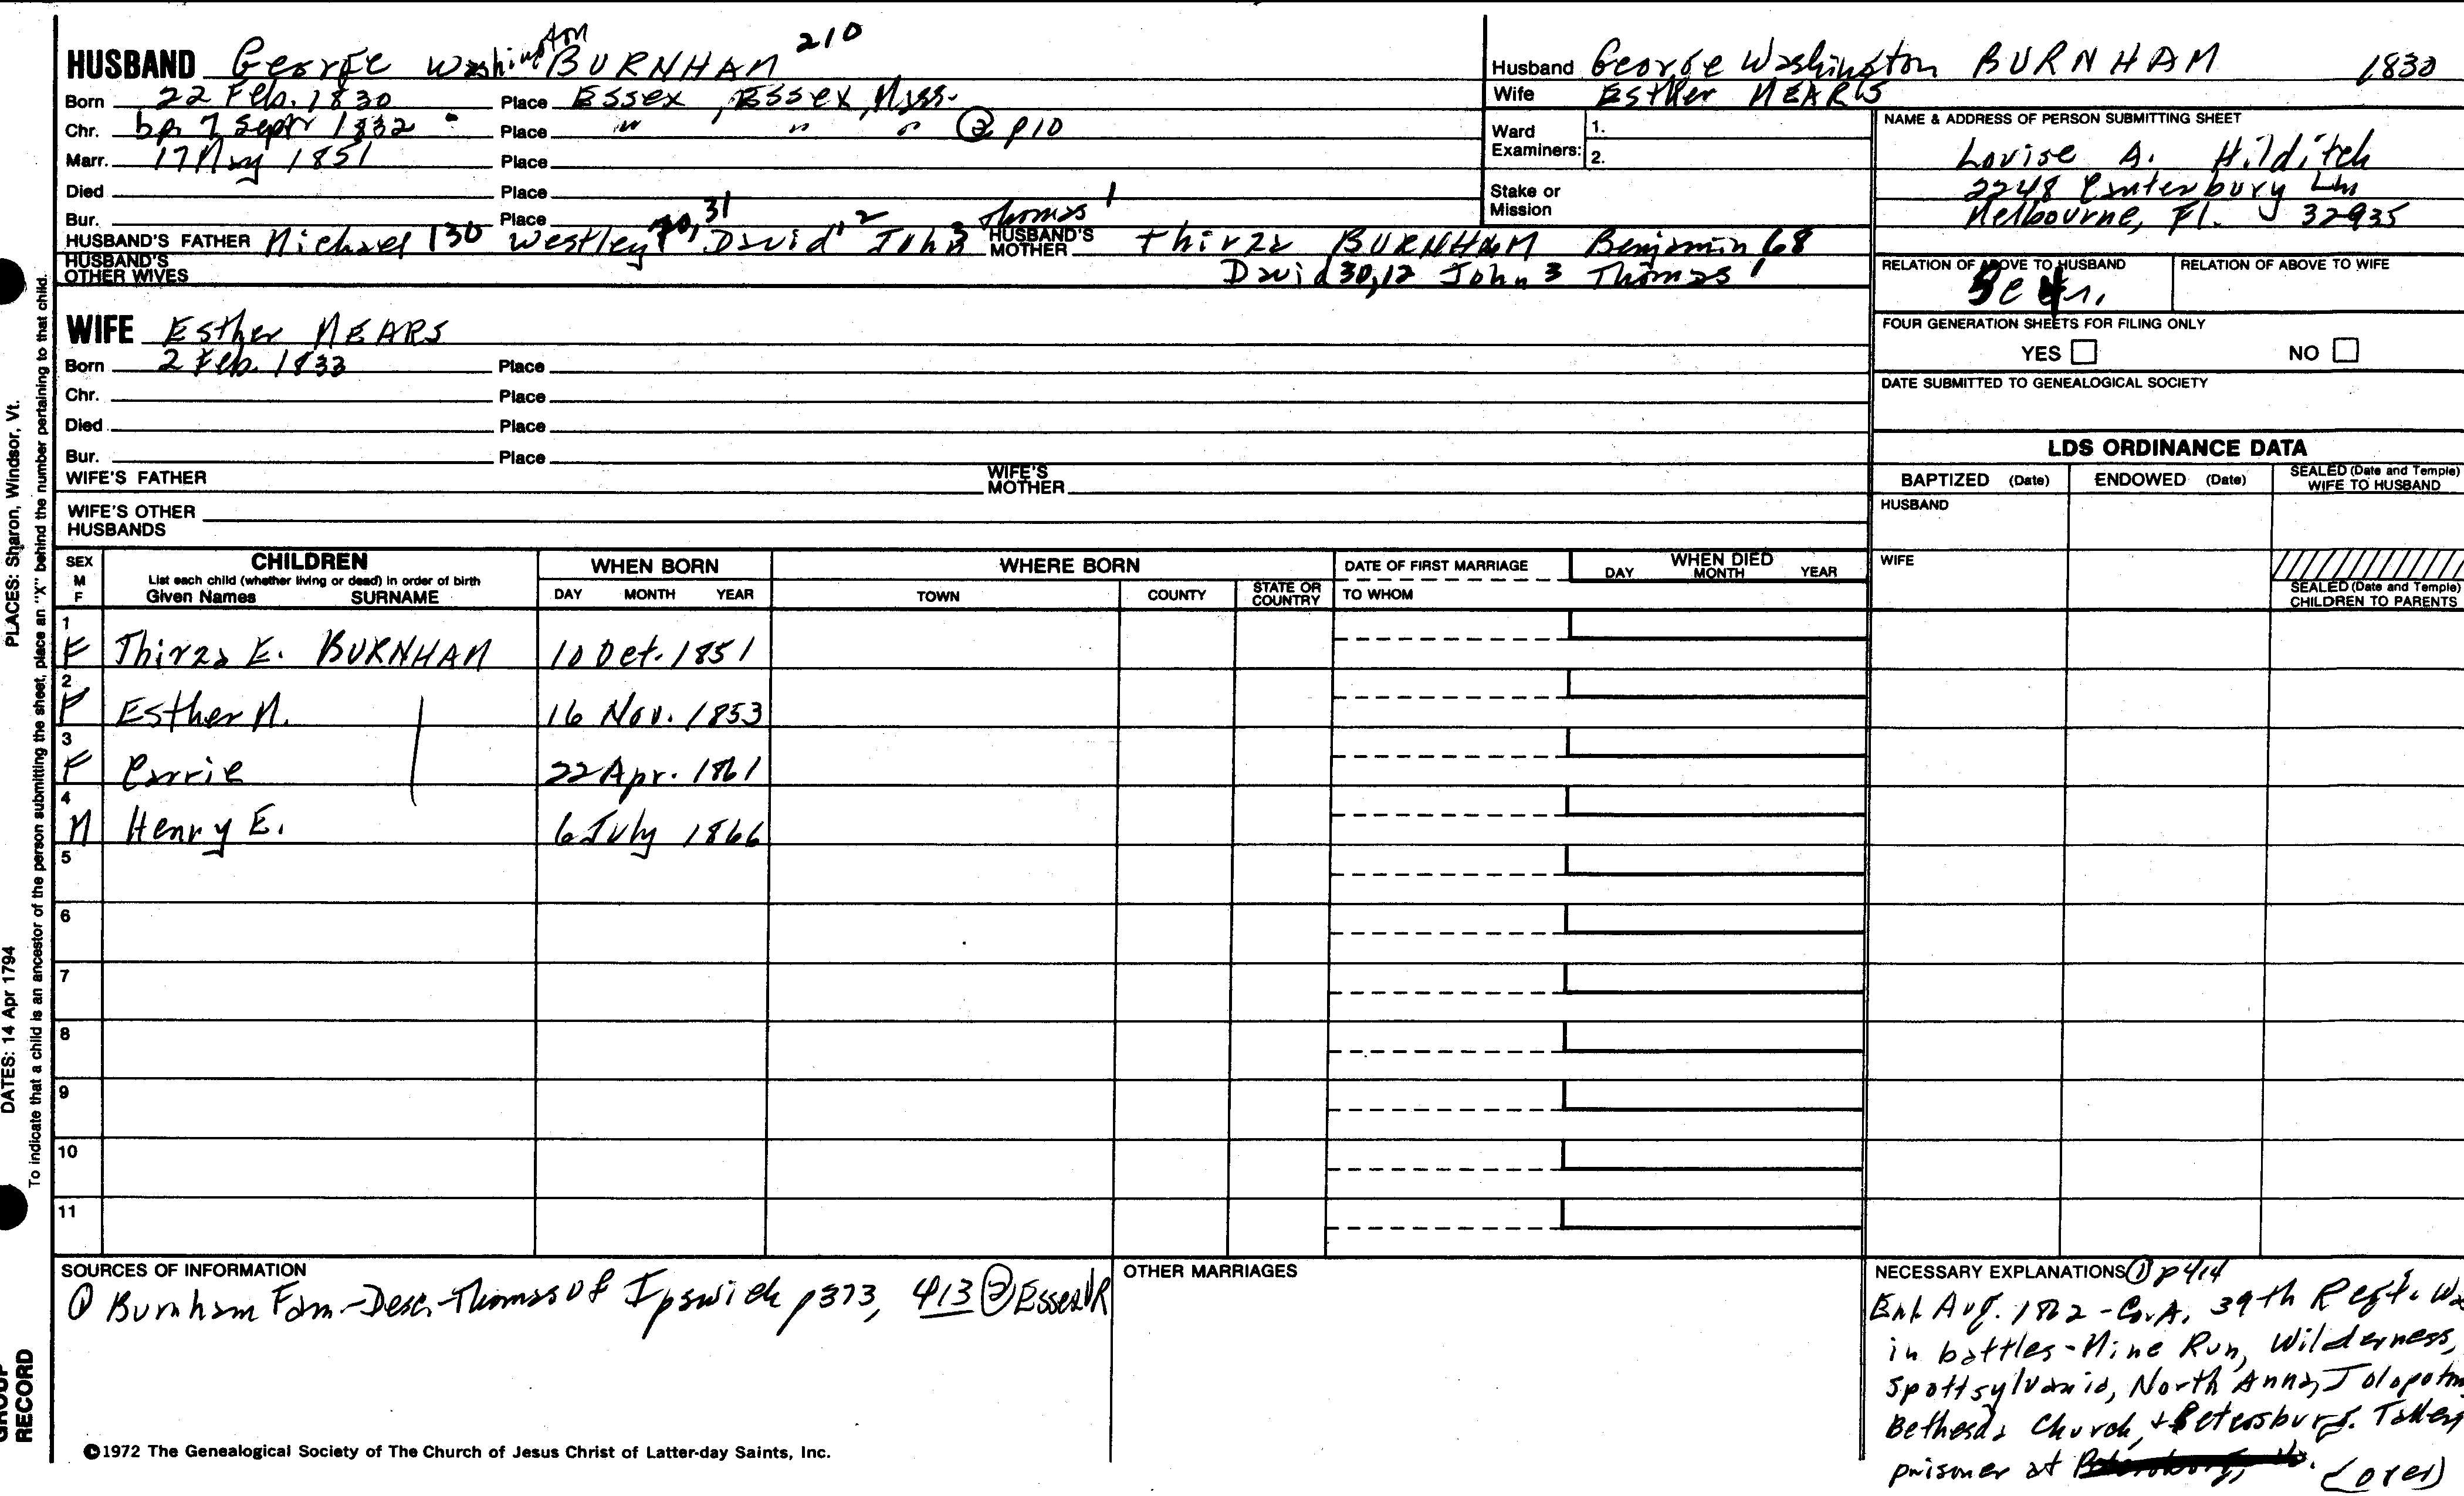 HUSBAND George Washington BURNHAM 210
Born 22 Feb. 1830 Place Essex, Essex, Mass.
Chr. bp 7 Sept 1832 Place " " " ② p10
Marr. 17 May 1851 Place
Died Place
Bur. Place
HUSBAND'S FATHER Michael 130 Westley 70, 31 David 12 John 3 Thomas 1 HUSBAND'S MOTHER Thirza BURNHAM Benjamin 68
HUSBAND'S OTHER WIVES David 30,12 John 3 Thomas 1
WIFE Esther MEARS
Born 2 Feb. 1833 Place
Chr. Place
Died Place
Bur. Place
WIFE'S FATHER WIFE'S MOTHER
WIFE'S OTHER HUSBANDS
Husband George Washington BURNHAM 1830
Wife Esther MEARS
Ward Examiners: 1.
2.
Stake or Mission
NAME & ADDRESS OF PERSON SUBMITTING SHEET
Louise A. Hilditch
2248 Canterbury Ln
Melbourne, Fl. 32935
RELATION OF ABOVE TO HUSBAND RELATION OF ABOVE TO WIFE
FOUR GENERATION SHEETS FOR FILING ONLY
YES NO
DATE SUBMITTED TO GENEALOGICAL SOCIETY
LDS ORDINANCE DATA
BAPTIZED (Date) ENDOWED (Date) SEALED (Date and Temple) WIFE TO HUSBAND
HUSBAND
WIFE
SEALED (Date and Temple) CHILDREN TO PARENTS
SEX M F
CHILDREN
List each child (whether living or dead) in order of birth
Given Names SURNAME
WHEN BORN
DAY MONTH YEAR
WHERE BORN
TOWN COUNTY STATE OR COUNTRY
DATE OF FIRST MARRIAGE
TO WHOM
WHEN DIED
DAY MONTH YEAR
1 F Thirza E. BURNHAM 10 Oct. 1851
2 F Esther M. 16 Nov. 1853
3 F Carrie 22 Apr. 1861
4 M Henry E. 6 July 1866
5
6
7
8
9
10
11
SOURCES OF INFORMATION
① Burnham Fam-Desc. Thomas of Ipswich p373, 413 ② Essex VR
OTHER MARRIAGES
NECESSARY EXPLANATIONS ① p 414
Enl. Aug. 1862 - Co. A, 39th Regt.
in battles - Mine Run, Wilderness,
Spottsylvania, North Anna,
Bethesda Church, + Petersburg. Taken
prisoner at (over)
©1972 The Genealogical Society of The Church of Jesus Christ of Latter-day Saints, Inc.
PLACES: Sharon, Windsor, Vt.
DATES: 14 Apr 1794
To indicate that a child is an ancestor of the person submitting the sheet, place an "X" behind the number pertaining to that child.
GROUP
RECORD